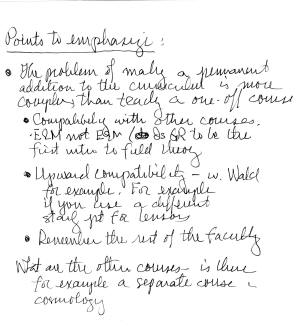 Points to emphasize:
• The problem of making a permanent
addition to the curriculum is more
complex than teach a one-off course
• Compatibility with other courses.
E&M not E&M ( Is GR to be the
first intro to field theory
• Upward compatibility – w. Wald
for example. For example
if you use a different
start pt for tensors
• Remember the rest of the faculty
What are the other courses – is there
for example a separate course in
cosmology